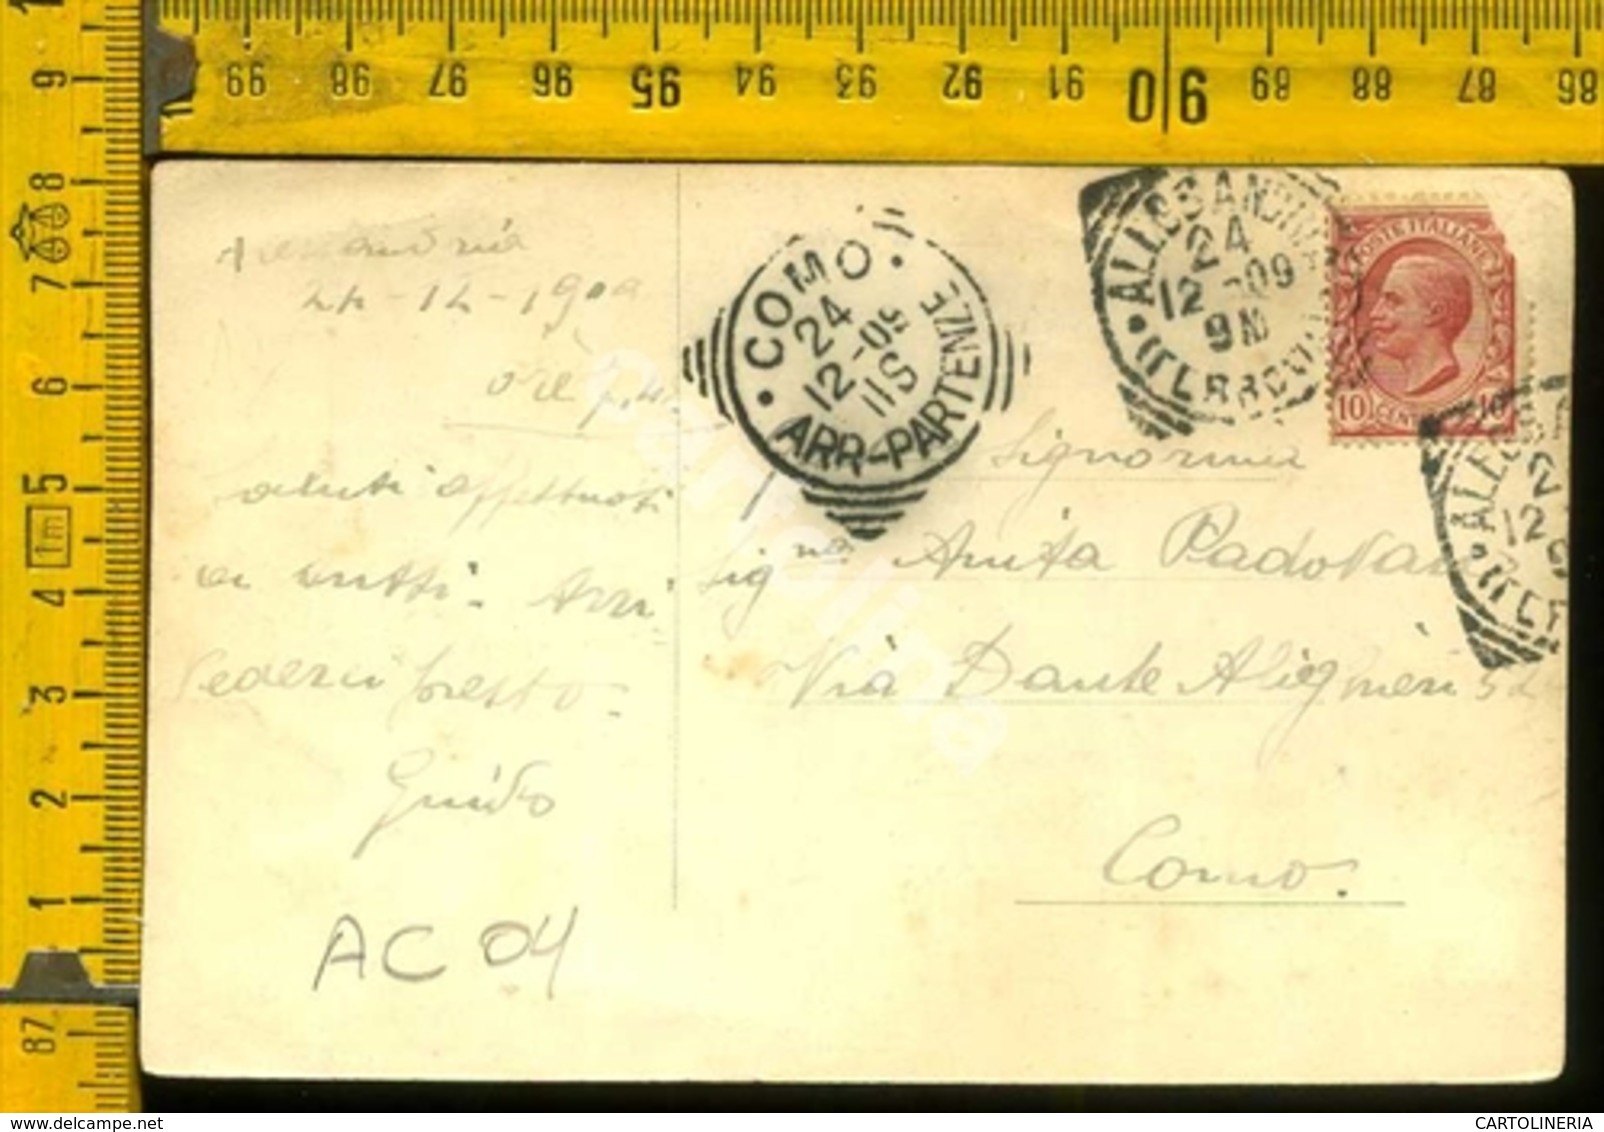 99 98 97 96 95 94 93 92 91 90 89 88 87 86
9
8
7
6
5
1m
4
3
2
1
87
Alessandria
24-12-1909
ore
Saluti affettuosi
a tutti. Arri
vederci presto.
Guido
AC 04
COMO
24
12-09
11S
ARR-PARTENZE
24
12-09
9M
POSTE ITALIANE
10 CENT 10
12
Signorina
Signa Anita
Via Dante Alighieri
Como.
cartolineria
CARTOLINERIA